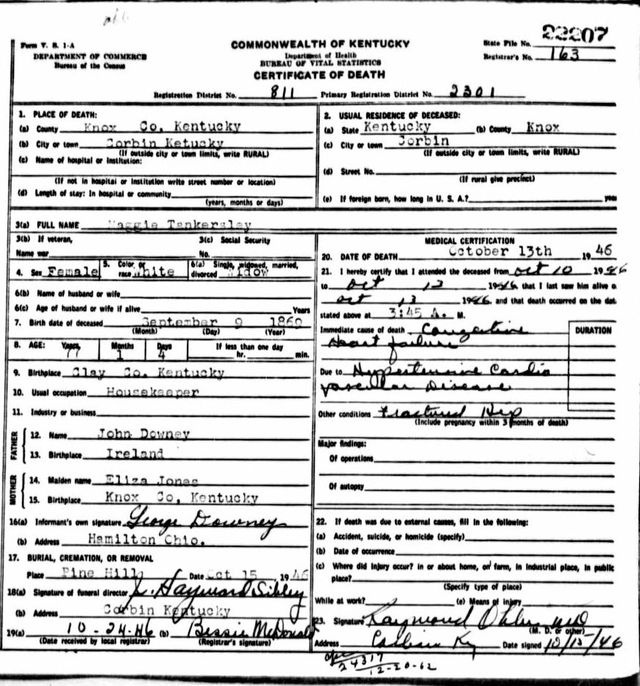 22207
Form V. S. 1-A
COMMONWEALTH OF KENTUCKY
State File No.
DEPARTMENT OF COMMERCE
Department of Health
Registrar's No. 163
Bureau of the Census
BUREAU OF VITAL STATISTICS
CERTIFICATE OF DEATH
Registration District No. 811 Primary Registration District No. 2301
1. PLACE OF DEATH:
(a) County Knox Co. Kentucky
(b) City or town Corbin Ketucky
(If outside city or town limits, write RURAL)
(c) Name of hospital or institution:
(If not in hospital or institution write street number or location)
(d) Length of stay: In hospital or community
(years, months or days)
2. USUAL RESIDENCE OF DECEASED:
(a) State Kentucky (b) County Knox
(c) City or town Corbin
(If outside city or town limits, write RURAL)
(d) Street No.
(If rural give precinct)
(e) If foreign born, how long in U. S. A.? years
3(a) FULL NAME Maggie Tankersley
3(b) If veteran,
Name war
3(c) Social Security
No.
4. Sex Female
5. Color or race White
6(a) Single, widowed, married, divorced Widow
6(b) Name of husband or wife
6(c) Age of husband or wife if alive Years
7. Birth date of deceased September 9
(Month) (Day) (Year)
8. AGE: Years 77 Months 1 Days 4 If less than one day
hr. min.
9. Birthplace Clay Co. Kentucky
10. Usual occupation Housekeeper
11. Industry or business
FATHER
12. Name John Downey
13. Birthplace Ireland
MOTHER
14. Maiden name Eliza Jones
15. Birthplace Knox Co, Kentucky
16(a) Informant's own signature George Downey
(b) Address Hamilton Ohio.
17. BURIAL, CREMATION, OR REMOVAL
Place Pine Hill Date Oct 15 1946
18(a) Signature of funeral director Hayward Sibley
(b) Address Corbin Kentucky
19(a) 10-24-46 (b) Bessie McDonald
(Date received by local registrar) (Registrar's signature)
MEDICAL CERTIFICATION
20. DATE OF DEATH October 13th 1946
21. I hereby certify that I attended the deceased from Oct 10 1946
to Oct 13 1946 that I last saw him alive on
Oct 13 1946 and that death occurred on the date
stated above at 3:45 A. M.
Immediate cause of death Congestive
DURATION
Heart failure
Due to Hypertensive Cardio
vascular Disease
Other conditions Fractured Hip
(Include pregnancy within 3 months of death)
Major findings:
Of operations
Of autopsy
22. If death was due to external causes, fill in the following:
(a) Accident, suicide, or homicide (specify)
(b) Date of occurrence
(c) Where did injury occur? in or about home, on farm, in industrial place, in public
place?
(Specify type of place)
While at work? (e) Means of injury
23. Signature Raymond
(M. D. or other)
Address Corbin Ky Date signed 10/15/46
24317
12-20-62